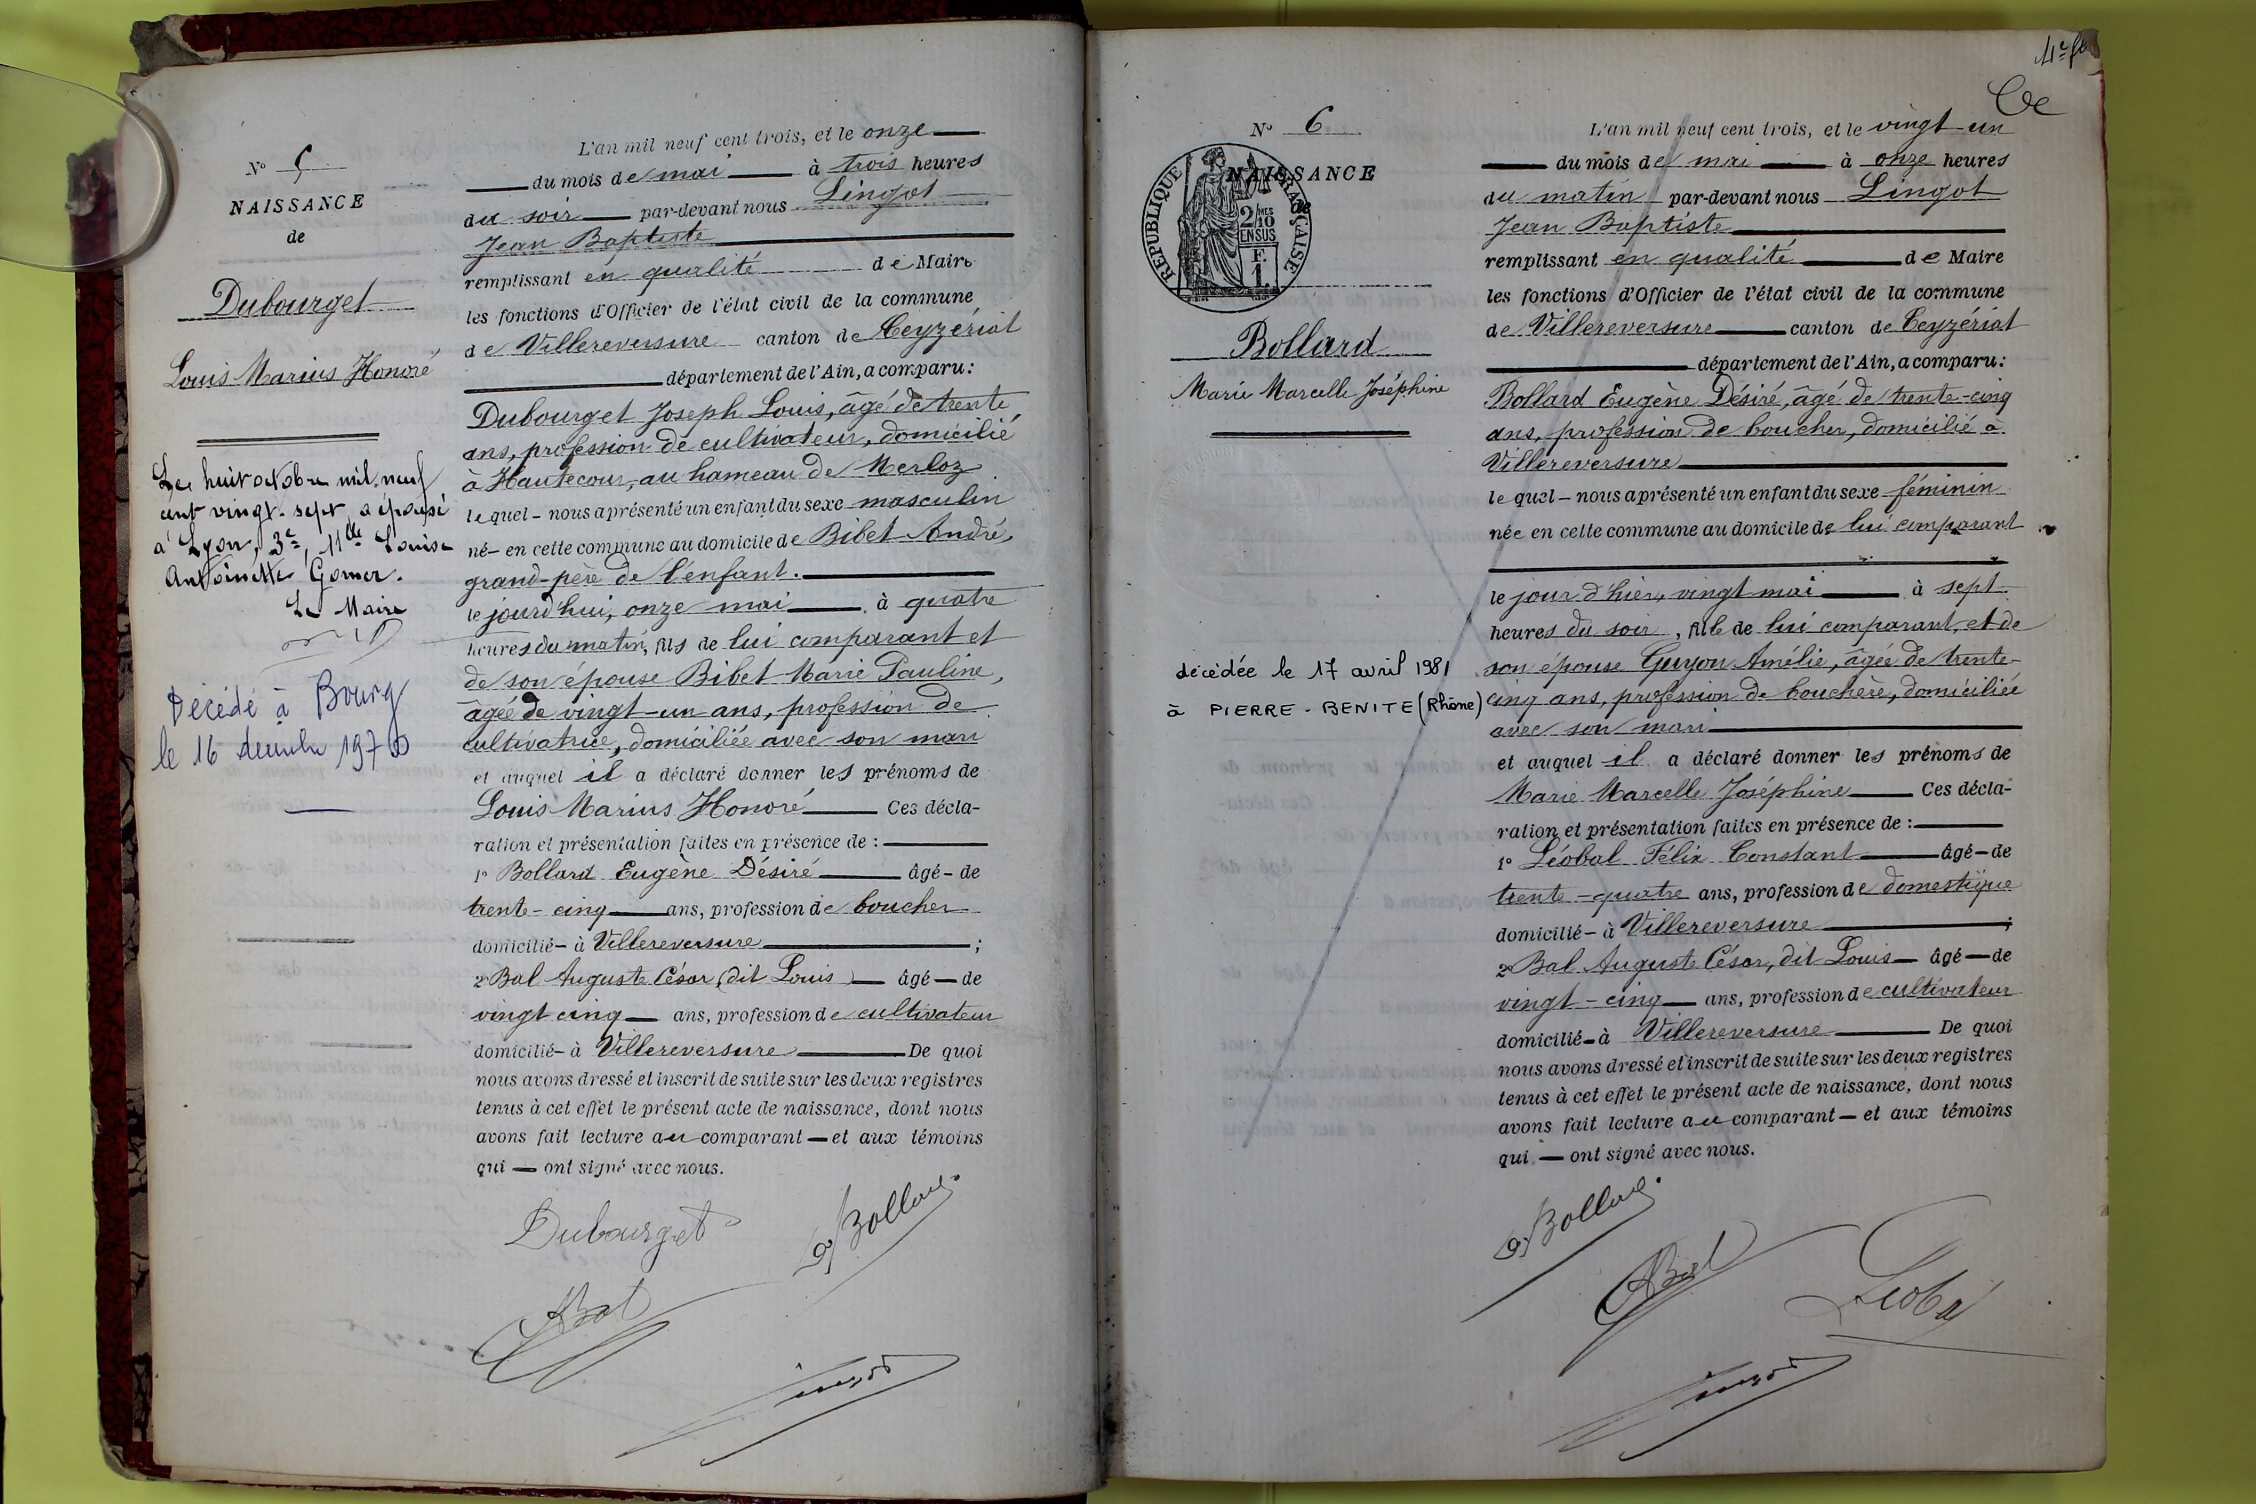 N° 5
NAISSANCE
de
Dubourget
Louis Marius Honoré
Le huit octobre mil neuf
cent vingt-sept a épousé
à Lyon, 3e, Louise
Antoinette
Le Maire
Décédé à Bourg
le 16 décembre
L'an mil neuf cent trois, et le onze
du mois de mai à trois heures
du soir par-devant nous Lingot
Jean Baptiste
remplissant en qualité de Maire
les fonctions d'Officier de l'état civil de la commune
de Villereversure canton de Ceyzériat
département de l'Ain, a comparu :
Dubourget Joseph Louis, âgé de trente
ans, profession de cultivateur, domicilié
à Hautecour, au hameau de Merloz
le quel - nous a présenté un enfant du sexe masculin
né - en cette commune au domicile de Bibet André,
grand-père de l'enfant.
le jourd'hui, onze mai à quatre
heures du matin, fils de lui comparant et
de son épouse Bibet Marie Pauline,
âgée de vingt-un ans, profession de
cultivatrice, domiciliée avec son mari
et auquel il a déclaré donner les prénoms de
Louis Marius Honoré Ces décla-
ration et présentation faites en présence de :
1° Bollard Eugène Désiré âgé - de
trente-cinq ans, profession de boucher
domicilié - à Villereversure ;
2° Bal Auguste César, (dit Louis) âgé - de
vingt cinq ans, profession de cultivateur
domicilié - à Villereversure De quoi
nous avons dressé et inscrit de suite sur les deux registres
tenus à cet effet le présent acte de naissance, dont nous
avons fait lecture au comparant - et aux témoins
qui - ont signé avec nous.
Dubourget
Bollard
ABal
Lingot
N° 6
NAISSANCE
de
RÉPUBLIQUE FRANÇAISE
2/10MES
EN SUS
F.
1.
Bollard
Marie Marcelle Joséphine
décédée le 17 avril 1981
à PIERRE-BENITE (Rhône)
L'an mil neuf cent trois, et le vingt-un
du mois de mai à onze heures
du matin par-devant nous Lingot
Jean Baptiste
remplissant en qualité de Maire
les fonctions d'Officier de l'état civil de la commune
de Villereversure canton de Ceyzériat
département de l'Ain, a comparu :
Bollard Eugène Désiré, âgé de trente-cinq
ans, profession de boucher, domicilié à
Villereversure
le quel - nous a présenté un enfant du sexe féminin
née en cette commune au domicile de lui comparant
le jour d'hier, vingt mai à sept
heures du soir, fille de lui comparant, et de
son épouse Guyon Amélie, âgée de trente-
cinq ans, profession de bouchère, domiciliée
avec son mari
et auquel il a déclaré donner les prénoms de
Marie Marcelle Joséphine Ces décla-
ration et présentation faites en présence de :
1° Léobal Félix Constant âgé - de
trente-quatre ans, profession de domestique
domicilié - à Villereversure ;
2° Bal Auguste César, dit Louis - âgé - de
vingt-cinq ans, profession de cultivateur
domicilié - à Villereversure De quoi
nous avons dressé et inscrit de suite sur les deux registres
tenus à cet effet le présent acte de naissance, dont nous
avons fait lecture au comparant - et aux témoins
qui - ont signé avec nous.
Bollard
ABal
Léobal
Lingot